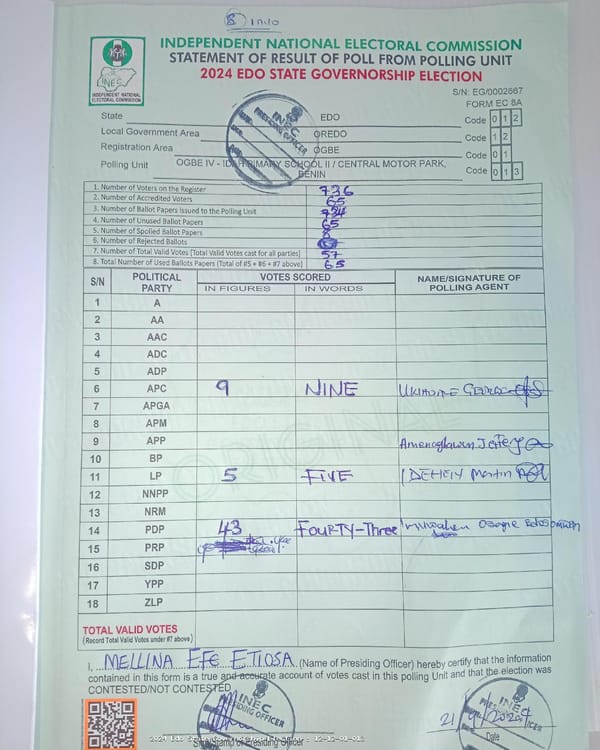 8 INIO
INDEPENDENT NATIONAL ELECTORAL COMMISSION
STATEMENT OF RESULT OF POLL FROM POLLING UNIT
2024 EDO STATE GOVERNORSHIP ELECTION
INEC
INDEPENDENT NATIONAL
ELECTORAL COMMISSION
S/N: EG/0002667
FORM EC 8A
State EDO Code 0 1 2
Local Government Area OREDO Code 1 2
Registration Area OGBE Code 0 1
Polling Unit OGBE IV - IDIA PRIMARY SCHOOL II / CENTRAL MOTOR PARK, BENIN Code 0 1 3
INEC
PRESIDING OFFICER
1. Number of Voters on the Register 736
2. Number of Accredited Voters 65
3. Number of Ballot Papers Issued to the Polling Unit 734
4. Number of Unused Ballot Papers 65
5. Number of Spoiled Ballot Papers
6. Number of Rejected Ballots
7. Number of Total Valid Votes (Total Valid Votes cast for all parties) 57
8. Total Number of Used Ballots Papers (Total of #5 + #6 + #7 above) 65
S/N POLITICAL PARTY VOTES SCORED NAME/SIGNATURE OF POLLING AGENT
IN FIGURES IN WORDS
1 A
2 AA
3 AAC
4 ADC
5 ADP
6 APC 9 NINE
7 APGA
8 APM
9 APP
10 BP
11 LP 5 FIVE Martin
12 NNPP
13 NRM
14 PDP 43 FOURTY-Three Osagie
15 PRP
16 SDP
17 YPP
18 ZLP
TOTAL VALID VOTES
(Record Total Valid Votes under #7 above)
I, MELLINA EFE ETIOSA (Name of Presiding Officer) hereby certify that the information
contained in this form is a true and accurate account of votes cast in this polling Unit and that the election was
CONTESTED/NOT CONTESTED
INEC
PRESIDING OFFICER
21/9/2024
Date